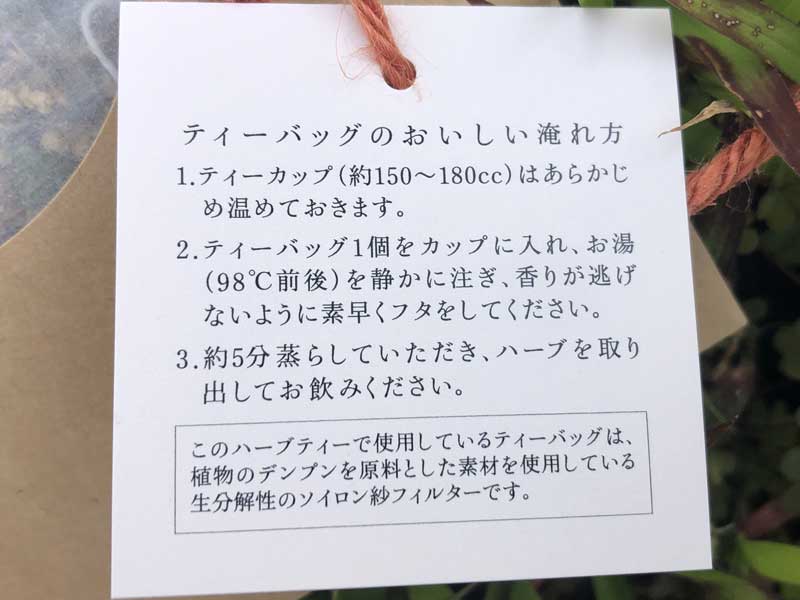 ティーバッグのおいしい淹れ方
1.ティーカップ(約150〜180cc)はあらかじ
め温めておきます。
2.ティーバッグ1個をカップに入れ、お湯
(98℃前後)を静かに注ぎ、香りが逃げ
ないように素早くフタをしてください。
3.約5分蒸らしていただき、ハーブを取り
出してお飲みください。
このハーブティーで使用しているティーバッグは、
植物のデンプンを原料とした素材を使用している
生分解性のソイロン紗フィルターです。